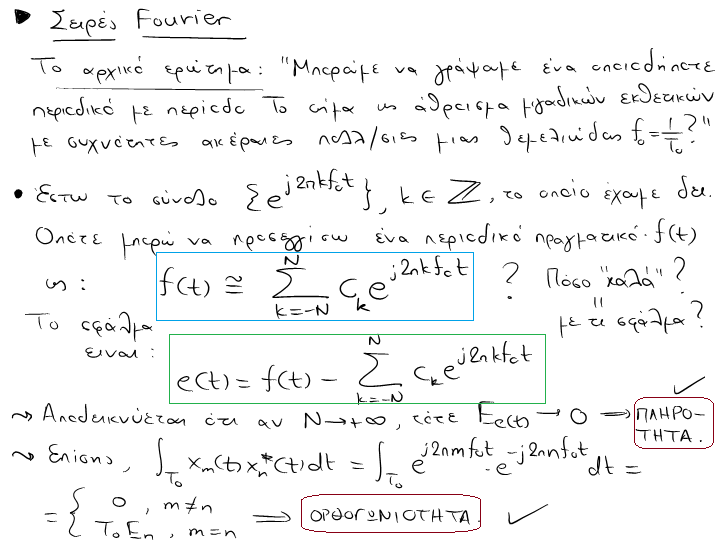 ▶ Σειρές Fourier
Το αρχικό ερώτημα: "Μπορούμε να γράψουμε ένα οποιοδήποτε
περιοδικό με περίοδο T₀ σήμα ως άθροισμα μιγαδικών εκθετικών
με συχνότητες ακέραιες πολλ/σιες μιας θεμελιώδους f₀ = 1/T₀ ?"
• Έστω το σύνολο {e^{j2πkf₀t}}, k ∈ ℤ, το οποίο έχουμε δει.
Οπότε μπορώ να προσεγγίσω ένα περιοδικό πραγματικό f(t)
ως: f(t) ≅ ∑_{k=-N}^{N} c_k e^{j2πkf₀t} ? Πόσο "καλά"?
Το σφάλμα με τι σφάλμα?
είναι: e(t) = f(t) − ∑_{k=-N}^{N} c_k e^{j2πkf₀t}
⇝ Αποδεικνύεται ότι αν N→+∞, τότε E_{e(t)} → 0 ⟹ ΠΛΗΡΟ-
ΤΗΤΑ. ✓
⇝ Επίσης, ∫_{T₀} x_m(t) x_n*(t) dt = ∫_{T₀} e^{j2πmf₀t} · e^{-j2πnf₀t} dt =
= { 0, m≠n
T₀ E_n, m=n ⟹ ΟΡΘΟΓΩΝΙΟΤΗΤΑ. ✓